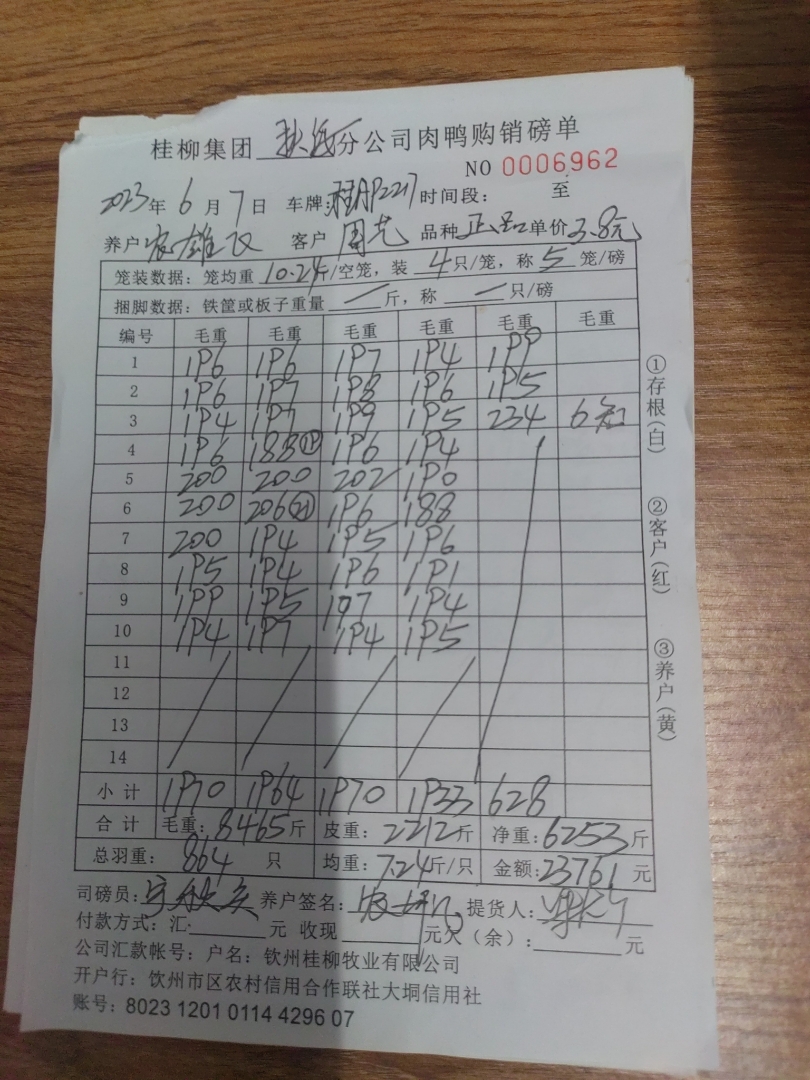 桂柳集团 钦伍 分公司肉鸭购销磅单
NO 0006962
2023年 6月 7日 车牌:桂AP2217 时间段: 至
养户 客户 周 品种 正 单价 3.8元
笼装数据:笼均重 10.24斤/空笼,装 4 只/笼,称 5 笼/磅
捆脚数据:铁筐或板子重量 / 斤,称 一 只/磅
编号 毛重 毛重 毛重 毛重 毛重 毛重
1 196 196 197 194 199
2 196 197 198 196 195
3 194 197 199 195 234 6
4 196 188 19 196 194
5 200 200 202 190
6 200 206 196 188
7 200 194 195 196
8 195 194 196 191
9 199 195 197 194
10 194 197 194 195
11
12
13
14
小计 1970 1964 1970 1933 628
合计 毛重:8465斤 皮重:2212斤 净重:6253斤
总羽重: 864 只 均重:7.24斤/只 金额:23761元
司磅员: 养户签名: 提货人:
付款方式:汇 元 收现 元欠(余): 元
公司汇款帐号:户名:钦州桂柳牧业有限公司
开户行:钦州市区农村信用合作联社大垌信用社
账号:8023 1201 0114 4296 07
①存根(白)
②客户(红)
③养户(黄)